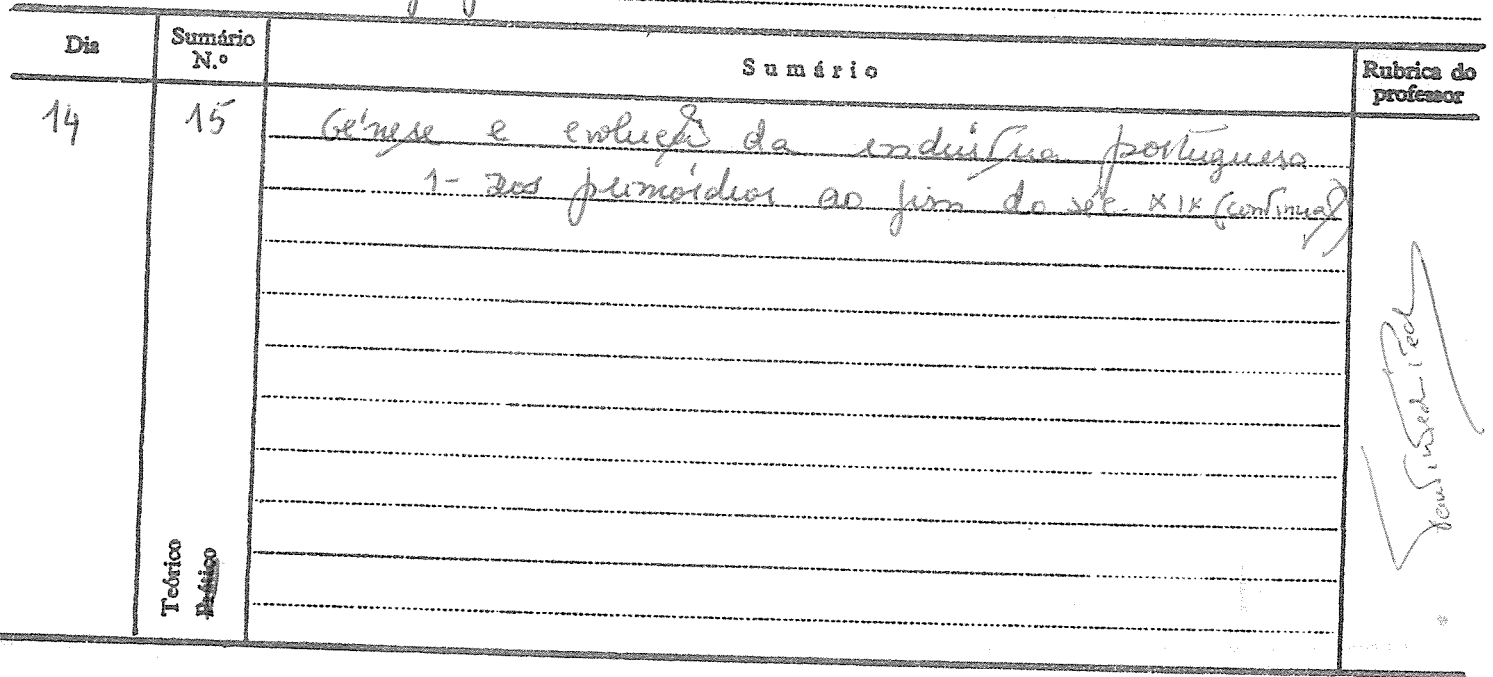 Dia
Sumário N.º
Sumário
Rubrica do professor
14
15
Génese e evolução da indústria portuguesa
1- Dos primórdios ao fim do séc. XIX (continuação)
Teórico
Prático